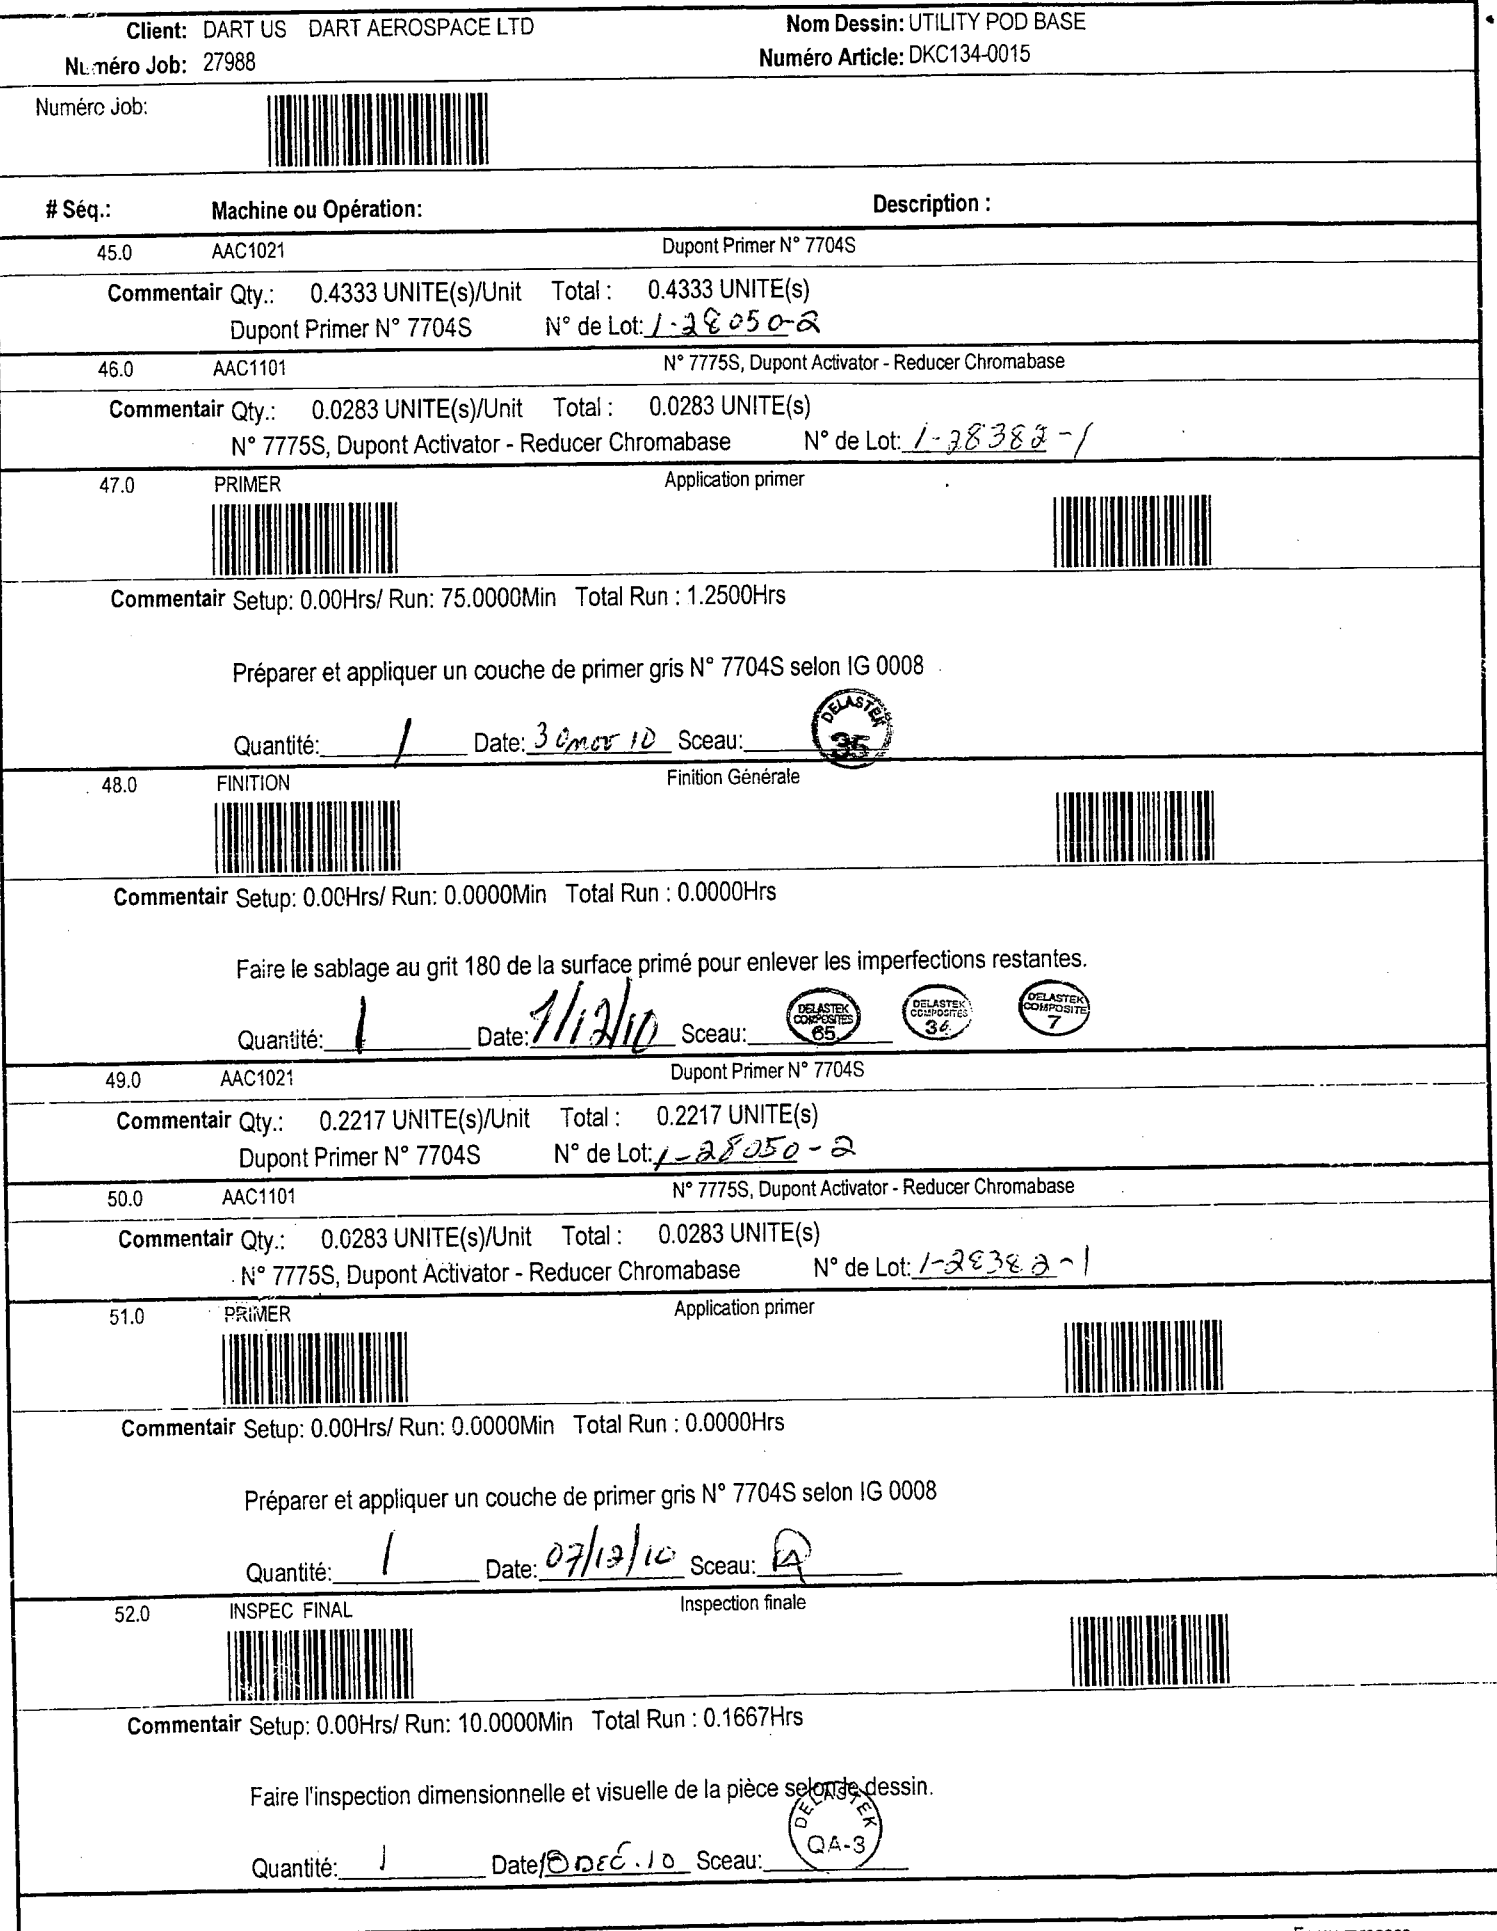 Client: DART US DART AEROSPACE LTD Nom Dessin: UTILITY POD BASE
Numéro Job: 27988 Numéro Article: DKC134-0015
Numéro Job:
# Séq.: Machine ou Opération: Description :
45.0 AAC1021 Dupont Primer N° 7704S
Commentair Qty.: 0.4333 UNITE(s)/Unit Total : 0.4333 UNITE(s)
Dupont Primer N° 7704S N° de Lot: 1-28050-2
46.0 AAC1101 N° 7775S, Dupont Activator - Reducer Chromabase
Commentair Qty.: 0.0283 UNITE(s)/Unit Total : 0.0283 UNITE(s)
N° 7775S, Dupont Activator - Reducer Chromabase N° de Lot: 1-28382-1
47.0 PRIMER Application primer
Commentair Setup: 0.00Hrs/ Run: 75.0000Min Total Run : 1.2500Hrs
Préparer et appliquer un couche de primer gris N° 7704S selon IG 0008
Quantité: 1 Date: 30 nov 10 Sceau: DELASTEK 35
48.0 FINITION Finition Générale
Commentair Setup: 0.00Hrs/ Run: 0.0000Min Total Run : 0.0000Hrs
Faire le sablage au grit 180 de la surface primé pour enlever les imperfections restantes.
Quantité: 1 Date: 1/12/10 Sceau: DELASTEK COMPOSITES 65 DELASTEK COMPOSITES 36 DELASTEK COMPOSITE 7
49.0 AAC1021 Dupont Primer N° 7704S
Commentair Qty.: 0.2217 UNITE(s)/Unit Total : 0.2217 UNITE(s)
Dupont Primer N° 7704S N° de Lot: 1-28050-2
50.0 AAC1101 N° 7775S, Dupont Activator - Reducer Chromabase
Commentair Qty.: 0.0283 UNITE(s)/Unit Total : 0.0283 UNITE(s)
N° 7775S, Dupont Activator - Reducer Chromabase N° de Lot: 1-28382-1
51.0 PRIMER Application primer
Commentair Setup: 0.00Hrs/ Run: 0.0000Min Total Run : 0.0000Hrs
Préparer et appliquer un couche de primer gris N° 7704S selon IG 0008
Quantité: 1 Date: 07/12/10 Sceau:
52.0 INSPEC FINAL Inspection finale
Commentair Setup: 0.00Hrs/ Run: 10.0000Min Total Run : 0.1667Hrs
Faire l'inspection dimensionnelle et visuelle de la pièce selon le dessin.
Quantité: 1 Date: DEC.10 Sceau: DELASTEK QA-3